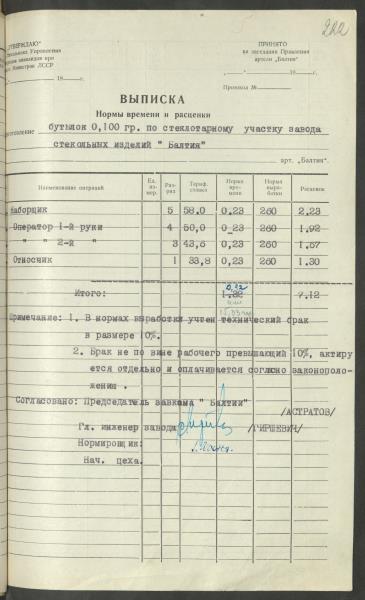 222
„УТВЕРЖДАЮ"
Управления
при
Министров ЛССР
ПРИНЯТО
на заседании Правления
артели „Балтия"
Протокол №
ВЫПИСКА
Нормы времени и расценки
бутылок 0,100 гр. по стеклотарному участку завода
стекольных изделий " Балтия"
арт. „Балтия".
Наименование операций Ед. измер. Разряд Тариф. ставка Норма времени Норма выработки Расценок
Наборщик 5 58,0 0,23 260 2,23
Оператор 1-й руки 4 50,0 0,23 260 1,92
" " 2-й " 3 43,6 0,23 260 1,67
Относчик 1 33,8 0,23 260 1.30
0,92
Итого: 7.12
Примечание: 1. В нормах выработки учтен технический брак
в размере 10%.
2. Брак не по вине рабочего превышающий 10%, актиру
ется отдельно и оплачивается согласно законополо-
жения .
Согласовано: Председатель завкома " Балтии"
/АСТРАТОВ/
Гл. инженер завода /ГИРШЕВИЧ/
Нормировщик:
Нач. цеха.